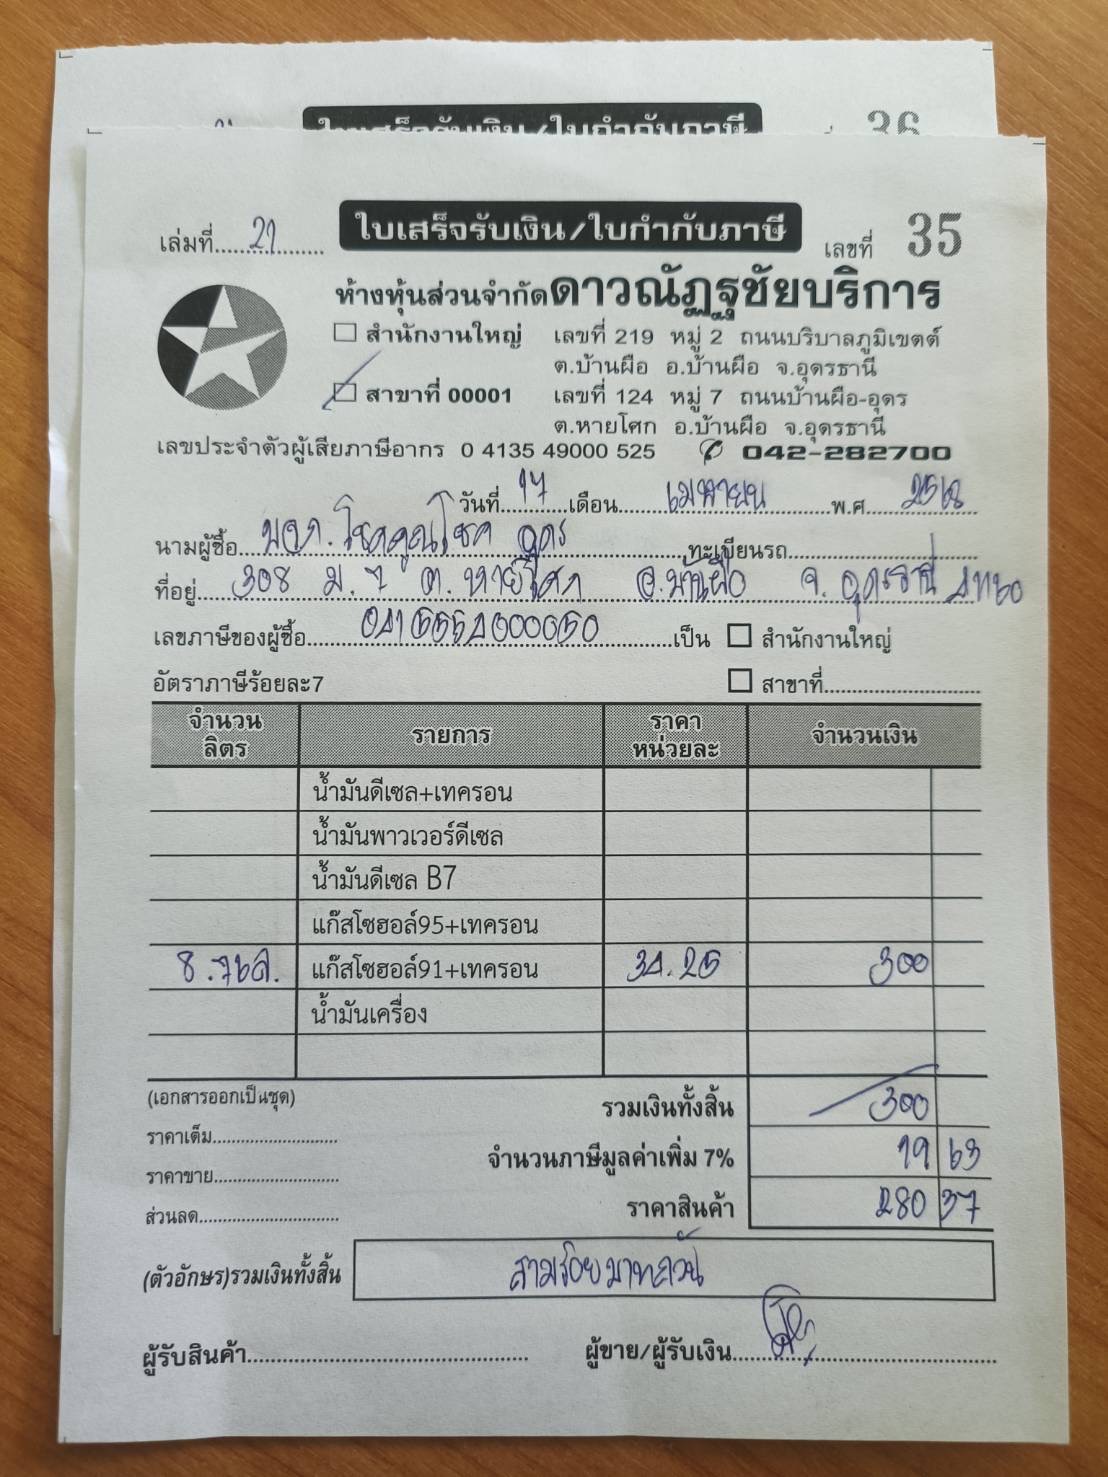 ใบเสร็จรับเงิน/ใบกำกับภาษี 36
เล่มที่ 21 ใบเสร็จรับเงิน/ใบกำกับภาษี เลขที่ 35
ห้างหุ้นส่วนจำกัดดาวณัฏฐชัยบริการ
สำนักงานใหญ่ เลขที่ 219 หมู่ 2 ถนนบริบาลภูมิเขตต์
ต.บ้านผือ อ.บ้านผือ จ.อุดรธานี
สาขาที่ 00001 เลขที่ 124 หมู่ 7 ถนนบ้านผือ-อุดร
ต.หายโศก อ.บ้านผือ จ.อุดรธานี
เลขประจำตัวผู้เสียภาษีอากร 0 4135 49000 525 042-282700
วันที่ 17 เดือน เมษายน พ.ศ. 2568
นามผู้ซื้อ โชคคูณโชค อุดร ทะเบียนรถ
ที่อยู่ 308 ม.7 ต.หายโศก อ.บ้านผือ จ.อุดรธานี 41160
เลขภาษีของผู้ซื้อ เป็น สำนักงานใหญ่
อัตราภาษีร้อยละ7 สาขาที่
จำนวนลิตร รายการ ราคาหน่วยละ จำนวนเงิน
น้ำมันดีเซล+เทครอน
น้ำมันพาวเวอร์ดีเซล
น้ำมันดีเซล B7
แก๊สโซฮอล์95+เทครอน
8.76ล. แก๊สโซฮอล์91+เทครอน 34.25 300
น้ำมันเครื่อง
(เอกสารออกเป็นชุด) รวมเงินทั้งสิ้น 300
ราคาเต็ม จำนวนภาษีมูลค่าเพิ่ม 7% 19 63
ราคาขาย
ราคาสินค้า 280 37
ส่วนลด
(ตัวอักษร)รวมเงินทั้งสิ้น สามร้อยบาทถ้วน
ผู้รับสินค้า ผู้ขาย/ผู้รับเงิน